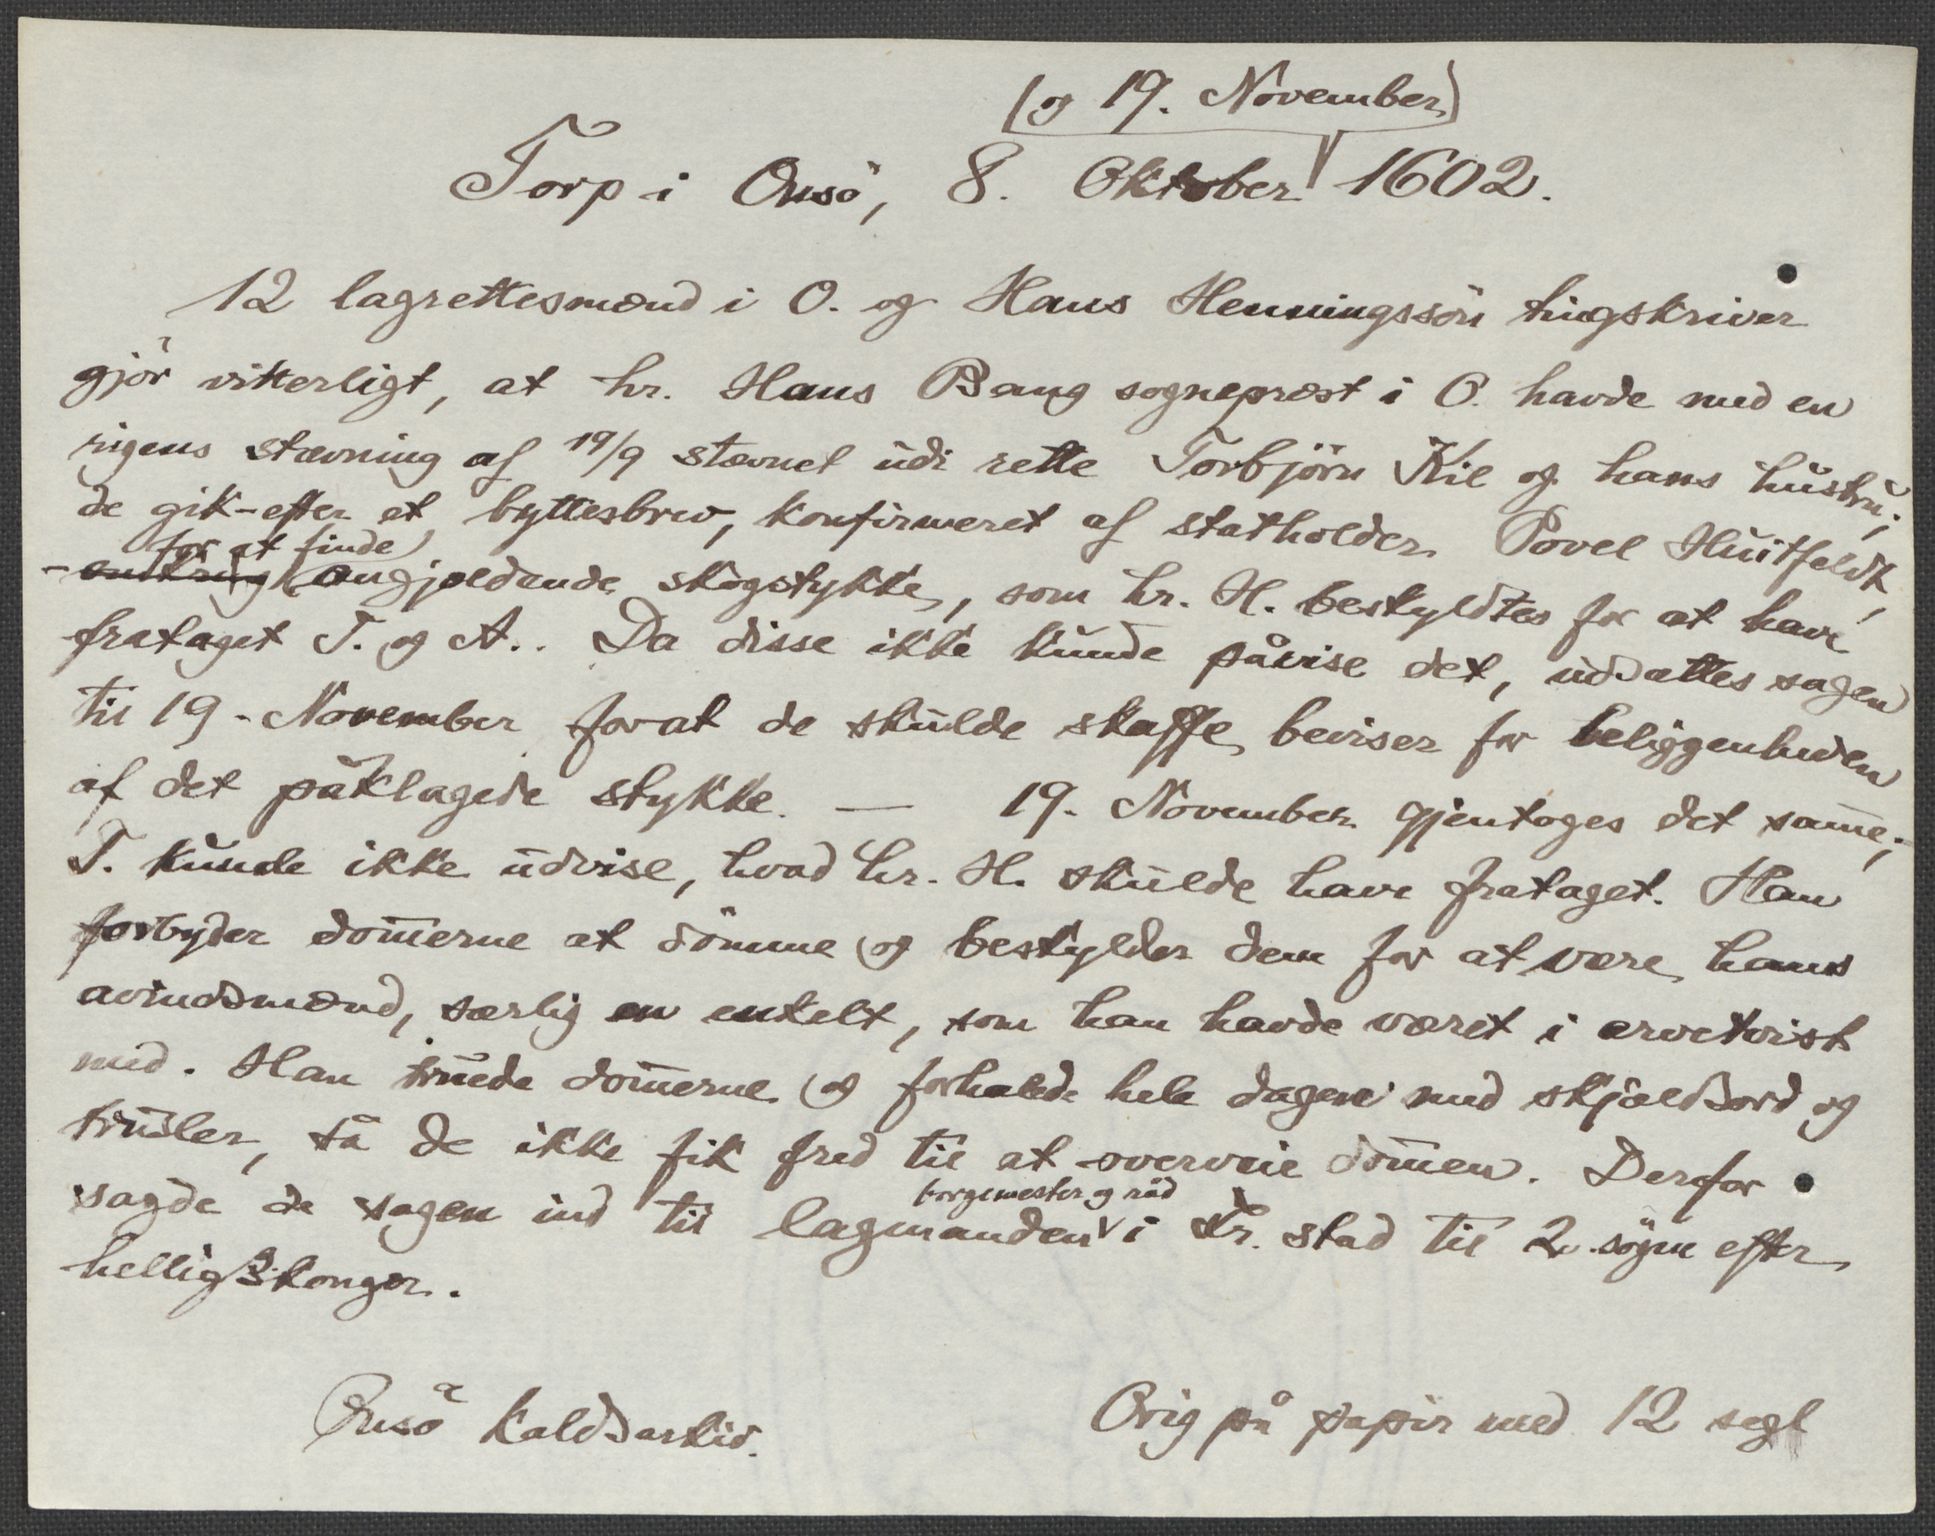 (og 19. November)
Torp i Onsö, 8. Oktober 1602.
12 lagrettesmænd i O. og Hans Henningssön tingskriver
gjör vitterligt, at hr. Hans Bang sogneprest i O. havde med en
rigens stævning af 19/9 stævnet udi rette Torbjörn Kil og hans hustru;
de gik efter et byttesbrev, konfirmeret af statholder Povel Huitfeldt,
for at finde
angjældende skogstykke, som hr. H. beskyldtes for at have
frataget T. og A.. Da disse ikke kunde påvise det, udsattes sagen
til 19. November forat de skulde skaffe beviser for beliggenheden
af det påklagede stykke. — 19. November gjentages det samme;
T. kunde ikke udvise, hvad hr. H. skulde have frataget. Han
forbyder domerne at dömme og beskylder dem for at være hans
avindsmænd, særlig en enkelt, som han havde været i arvetvist
med. Han truede domerne og forhalede hele dagen med skjældsord og
trusler, så de ikke fik fred til at overveie dommen. Derfor
borgemester og råd
sagde de sagen ind til lagmanden i Fr. stad til 2. sögn efter
hellig 3 konger.
Onsö kaldsarkiv. Orig på papir med 12 segl